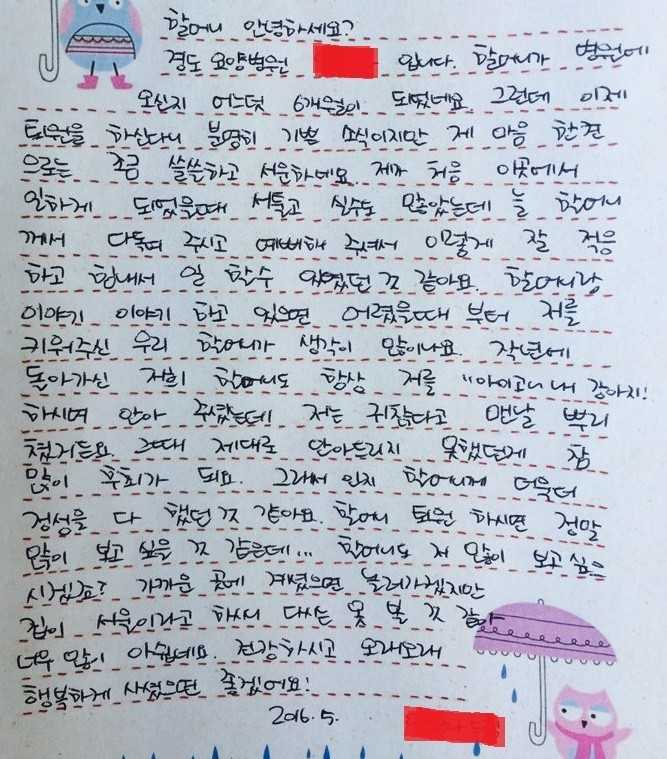 할머니 안녕하세요?
경도 요양병원 입니다. 할머니가 병원에
오신지 어느덧 6개월이 되었네요. 그런데 이제
퇴원을 하신다니 분명히 기쁜 소식이지만 제 마음 한켠
으로는 조금 쓸쓸하고 서운하네요. 제가 처음 이곳에서
일하게 되었을때 서툴고 실수도 많았는데 늘 할머니
께서 다독여 주시고 예뻐해 주셔서 이렇게 잘 적응
하고 힘내서 일 할수 있었던 것 같아요. 할머니랑
이야기 이야기 하고 있으면 어렸을때 부터 저를
키워주신 우리 할머니가 생각이 많이나요. 작년에
돌아가신 저희 할머니도 항상 저를 "아이고~ 내 강아지!
하시며 안아 주셨는데 저는 귀찮다고 맨날 뿌리
쳤거든요. 그때 제대로 안아드리지 못했던게 참
많이 후회가 되요. 그래서 인지 할머니께 더욱더
정성을 다 했던 것 같아요. 할머니 퇴원 하시면 정말
많이 보고 싶을 것 같은데... 할머니도 저 많이 보고 싶으
시겠죠? 가까운 곳에 계셨으면 놀러가겠지만
집이 서울이라고 하셔서 다시는 못 볼 것 같아
너무 많이 아쉽네요. 건강하시고 오래오래
행복하게 사셨으면 좋겠어요!
2016.5.